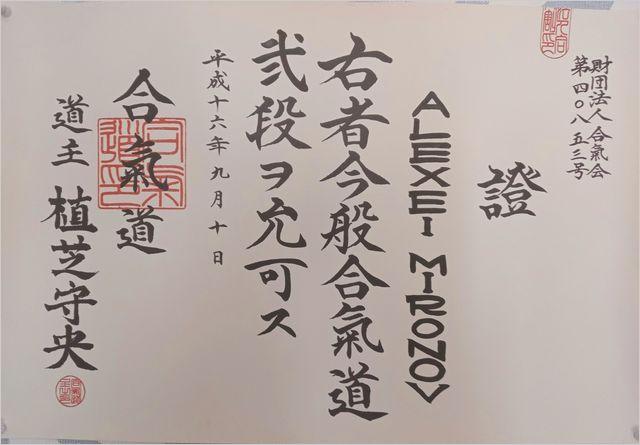 財団法人合氣会
第四〇八五三号
證
ALEXEI MIRONOV
右者今般合氣道
弐段ヲ允可ス
平成十六年九月十日
合氣道
道主 植芝守央